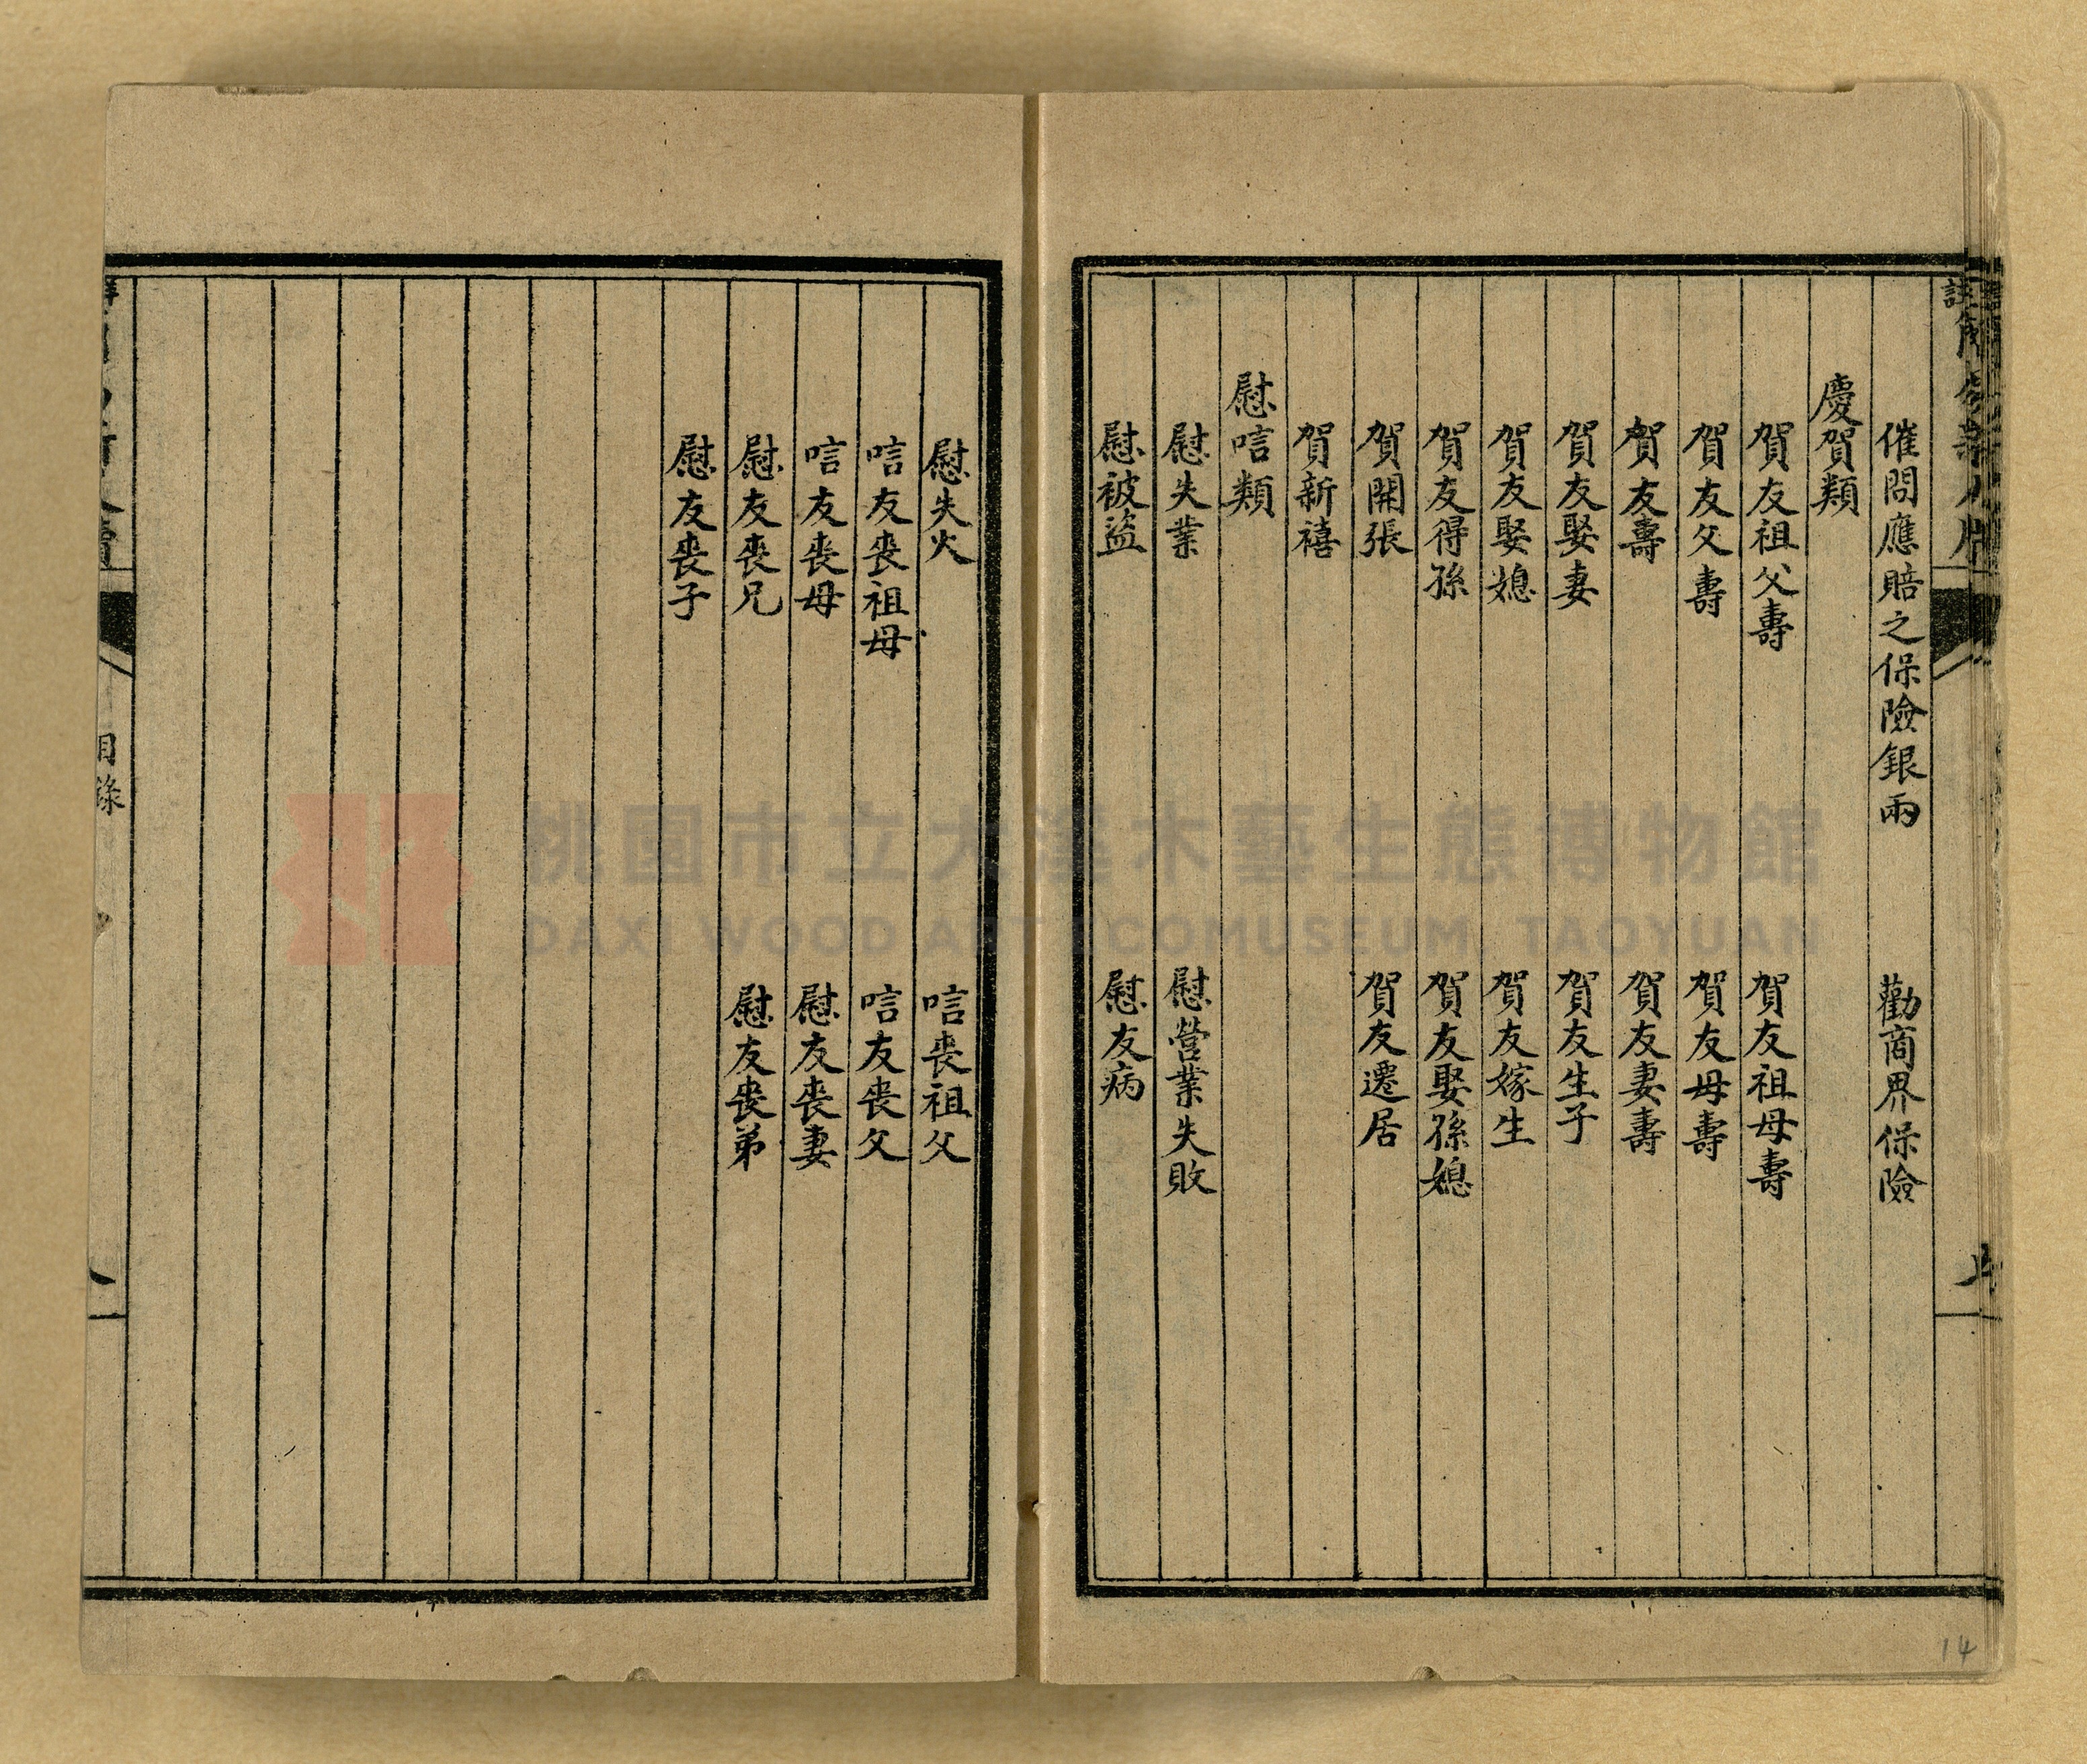 催問應賠之保險銀兩　勸商界保險
慶賀類
賀友祖父壽　賀友祖母壽
賀友父壽　賀友母壽
賀友壽　賀友妻壽
賀友娶妻　賀友生子
賀友娶媳　賀友嫁生
賀友得孫　賀友娶孫媳
賀開張　賀友遷居
賀新禧
慰唁類
慰失業　慰營業失敗
慰被盜　慰友病
14
慰失火　唁喪祖父
唁友喪祖母　唁友喪父
唁友喪母　慰友喪妻
慰友喪兄　慰友喪弟
慰友喪子
目錄
桃園市立大溪木藝生態博物館
DAXI WOOD ART ECOMUSEUM, TAOYUAN